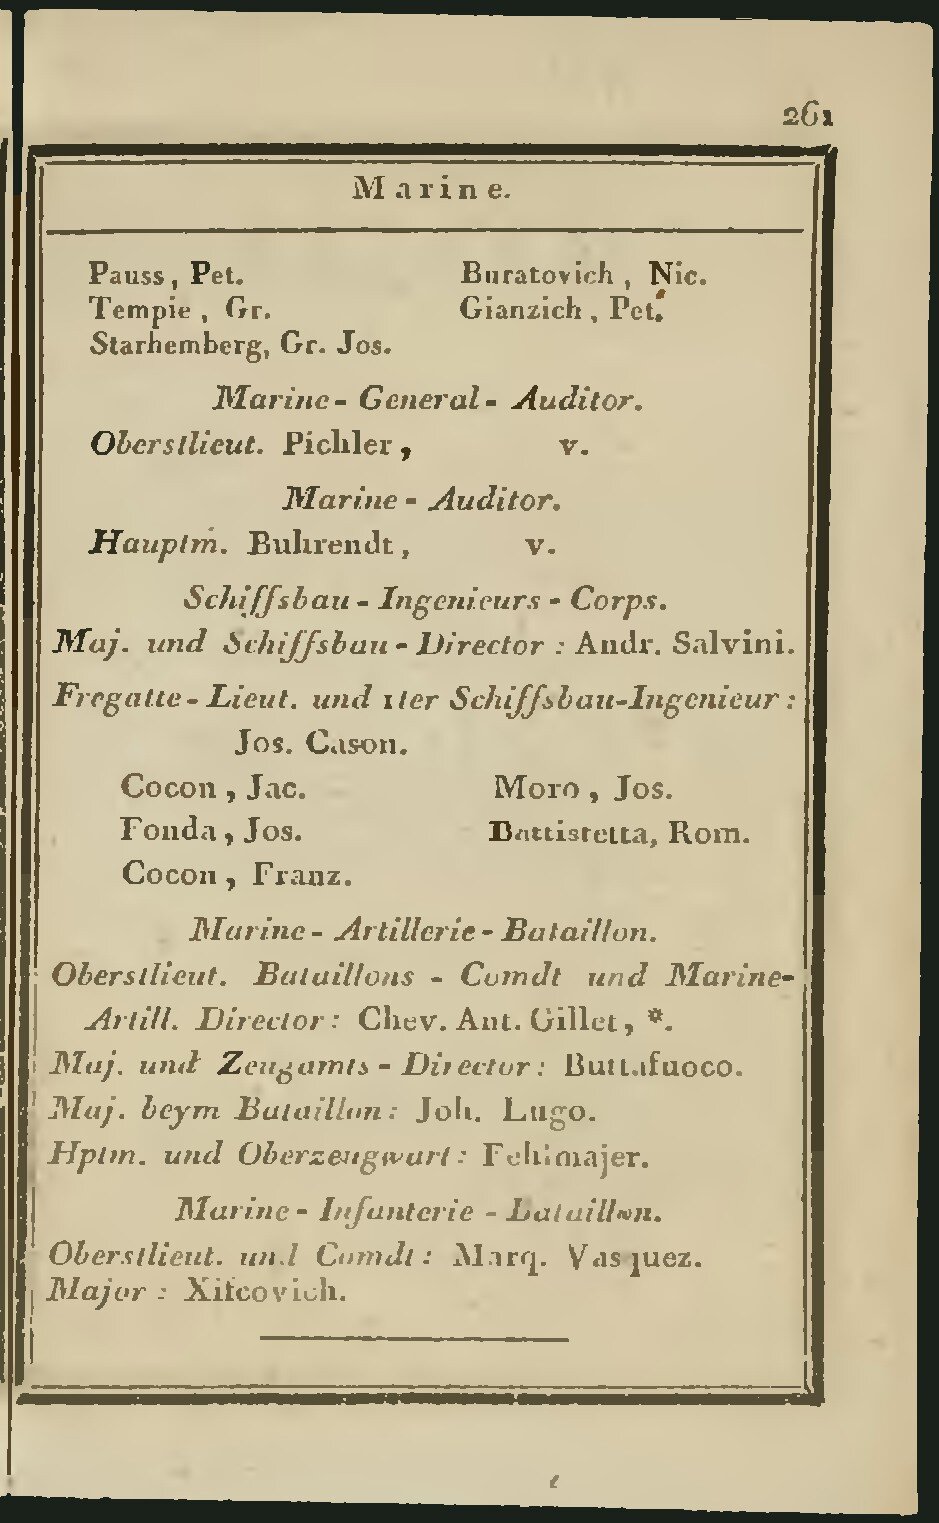 261
Marine.
Pauss, Pet. Buratovich, Nic.
Tempie, Gr. Gianzich, Pet.
Starhemberg, Gr. Jos.
Marine- General- Auditor.
Oberstlieut. Pichler, v.
Marine - Auditor.
Hauptm. Buhrendt, v.
Schiffsbau - Ingenieurs - Corps.
Maj. und Schiffsbau - Director : Andr. Salvini.
Fregatte- Lieut. und 1ter Schiffsbau-Ingenieur :
Jos. Cason.
Cocon, Jac. Moro, Jos.
Fonda, Jos. Battistetta, Rom.
Cocon, Franz.
Marine- Artillerie- Bataillon.
Oberstlieut. Bataillons - Comdt und Marine-
Artill. Director: Chev. Ant. Gillet, *.
Maj. und Zeugamts - Director: Buttafuoco.
Maj. beym Bataillon: Joh. Lugo.
Hptm. und Oberzeugwart: Fehlmajer.
Marine- Infanterie - Bataillon.
Oberstlieut. und Comdt: Marq. Vasquez.
Major : Xitcovich.